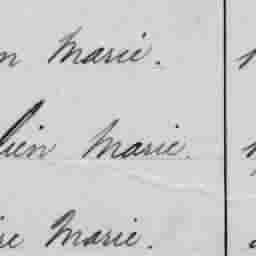 n Marie.
lien Marie.
re Marie.